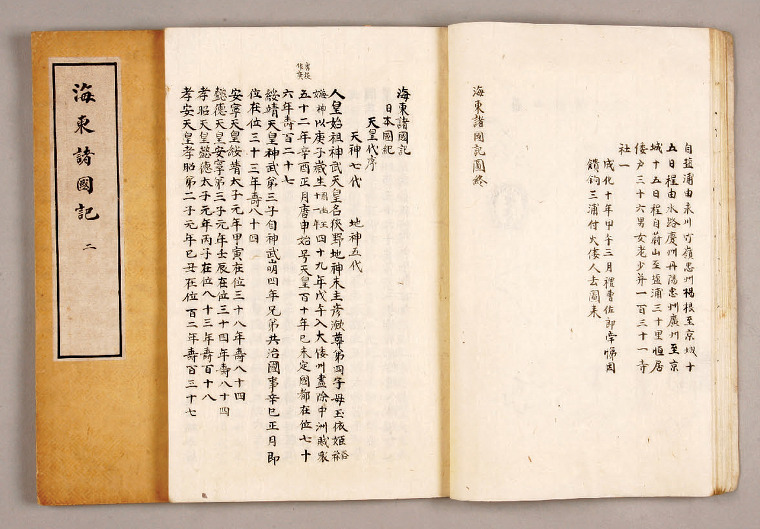 自鹽浦由永川竹嶺忠州楊根至京城十
五日程由水路慶州丹陽忠州廣州至京
城十五日程自蔚山至鹽浦三十里恒居
倭戶三十六男女老少并一百三十一寺
社一
成化十年甲午三月禮曹佐郎南悌因
饋餉三浦付火倭人去圖來
海東諸國記圖終
海東諸國記
日本國紀
天皇代序
天神七代 地神五代
人皇始祖神武天皇名狹野地神末主彦瀲尊第四子母玉依姬俗稱
海神以庚子歲生周幽王十一年四十九年戊午入大倭州盡除中洲賊衆
五十二年辛酉正月庚申始号天皇百十年己未定國都在位七十
六年壽百二十七
綏靖天皇神武第三子自神武崩四年兄弟共治國事辛巳正月即
位在位三十三年壽八十四
安寧天皇綏靖太子元年甲寅在位三十八年壽八十四
懿德天皇安寧第三子元年壬辰在位三十四年壽八十四
孝昭天皇懿德太子元年丙子在位八十三年壽百十八
孝安天皇孝昭第二子元年己丑在位百二年壽百三十七
海東諸國記 二